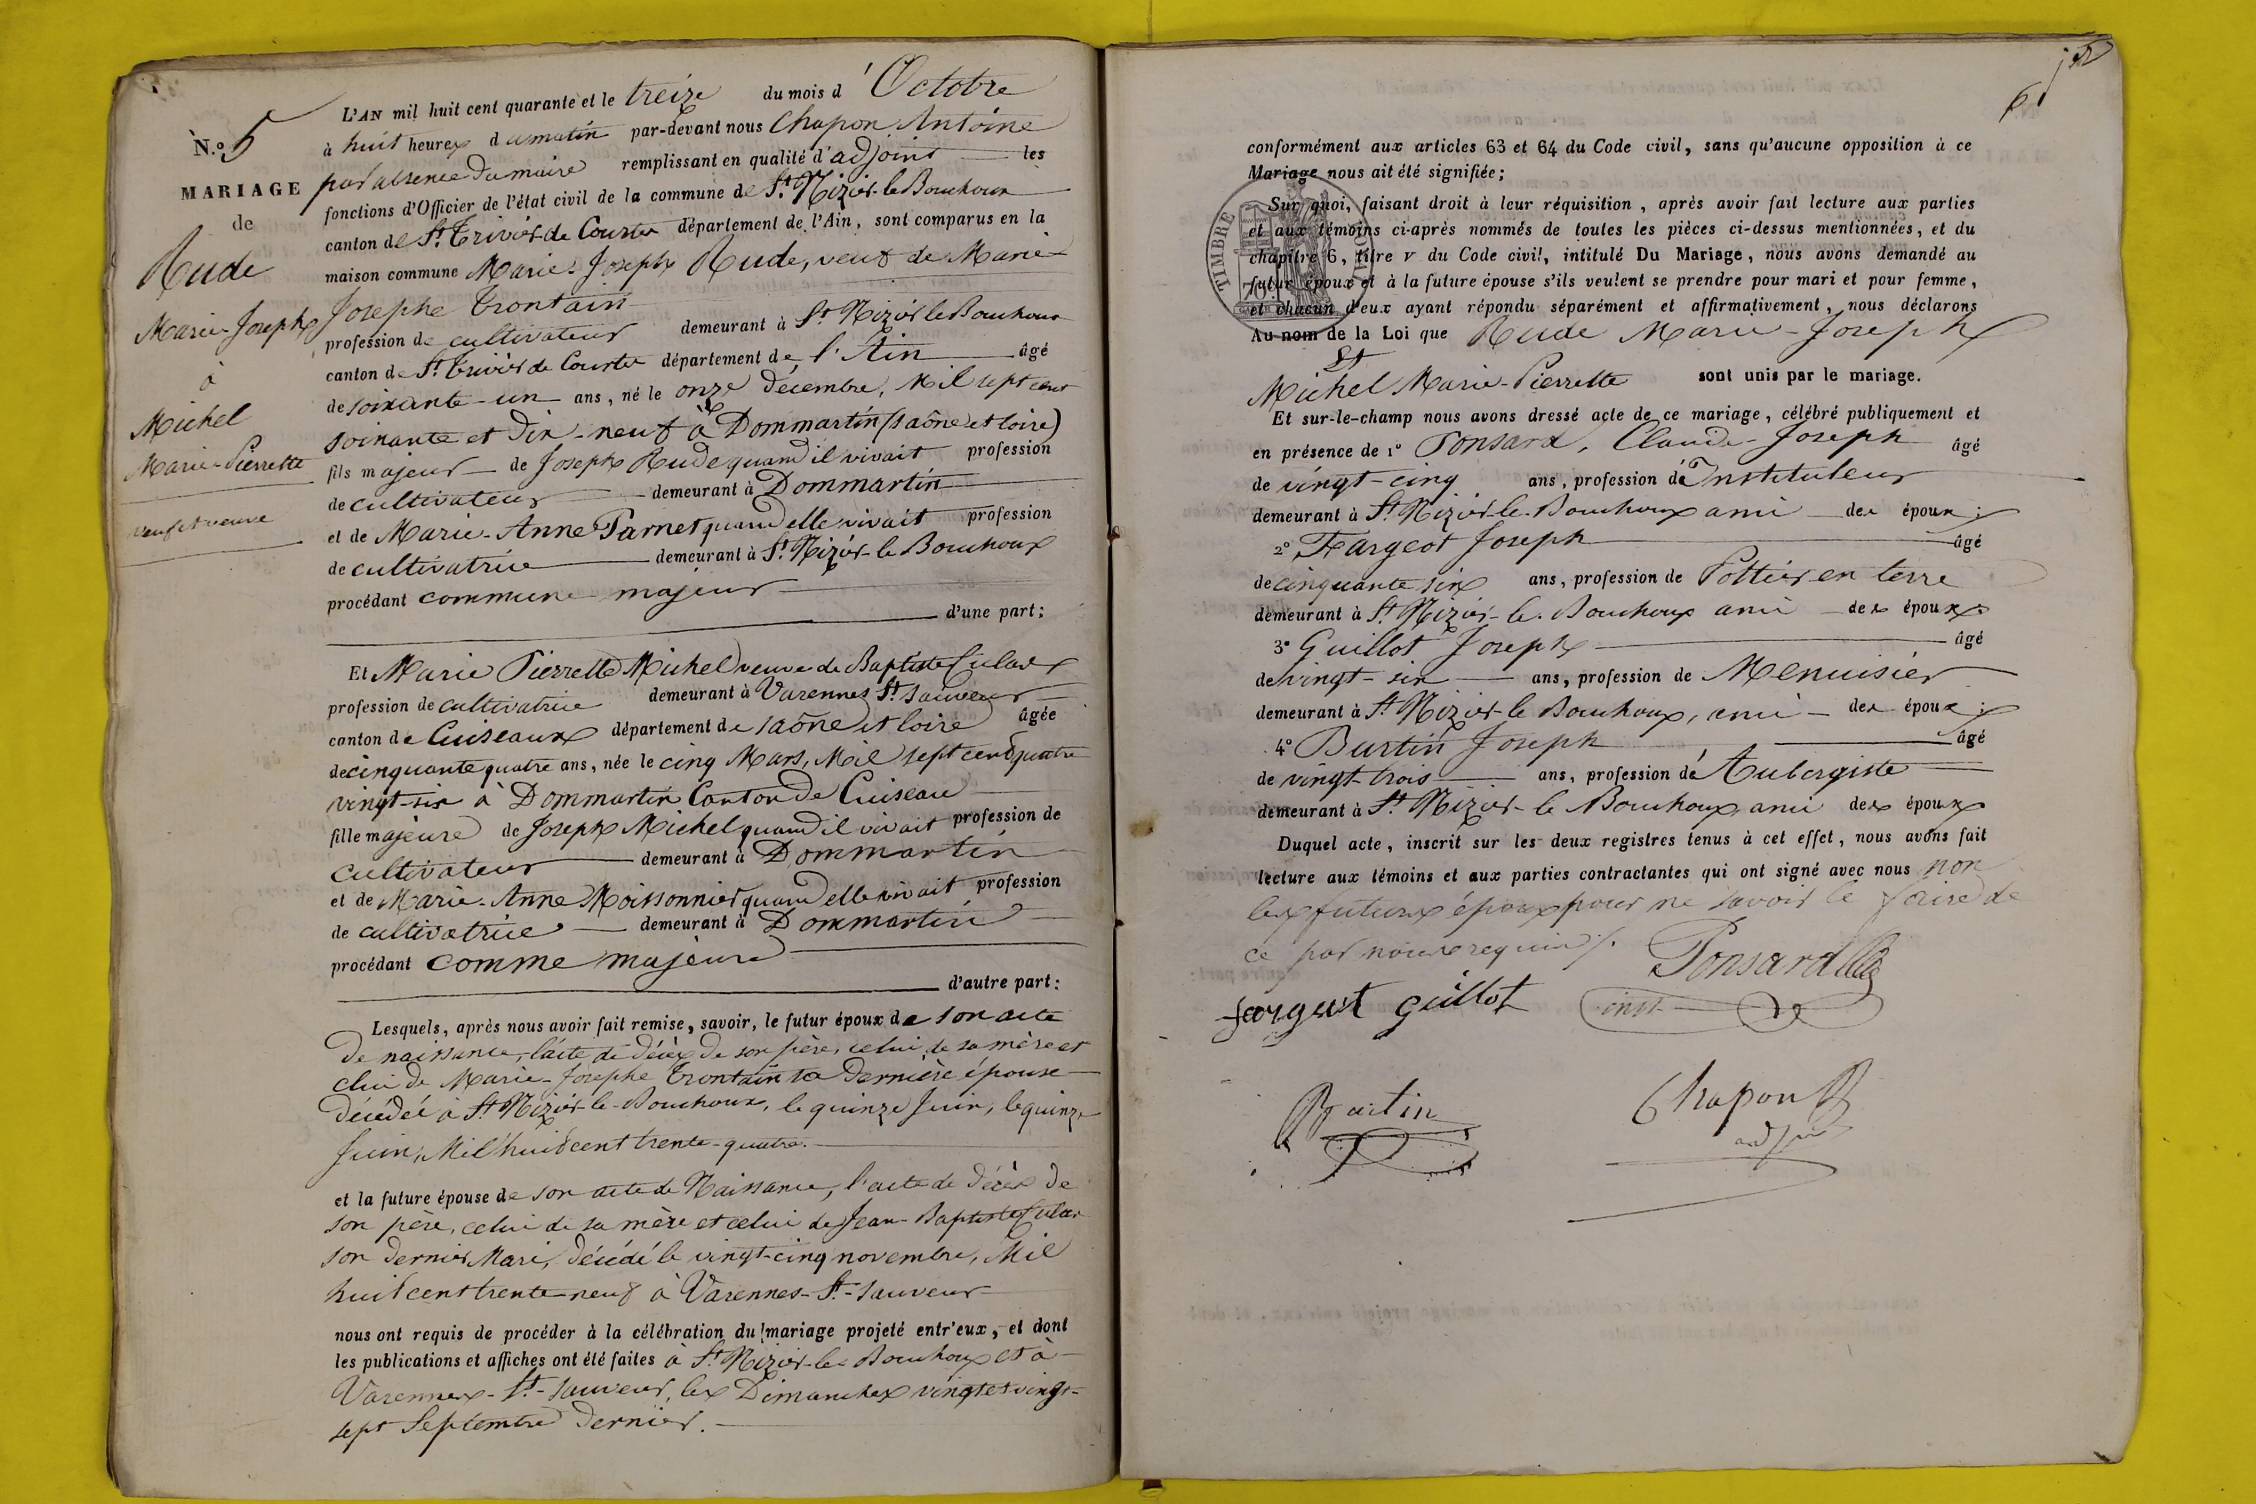 N.o 5
MARIAGE
de
Rude
Marie-Joseph
à
Michel
Marie-Pierrette
veuf et veuve
L'AN mil huit cent quarante et le treize du mois d'Octobre
à huit heures du matin par-devant nous Chapon Antoine
par absence du maire remplissant en qualité d'adjoint les
fonctions d'Officier de l'état civil de la commune de St Nizier-le Bouchoux
canton de St Trivier de Courtes département de l'Ain, sont comparus en la
maison commune Marie-Joseph Rude, veuf de Marie
Josephe Trontain
profession de cultivateur demeurant à St Nizier le Bouchoux
canton de St Trivier de Courtes département de l'Ain âgé
de soixante-un ans, né le onze décembre, Mil sept cent
soixante et dix-neuf à Dommartin (saône et loire)
fils majeur de Joseph Rude quand il vivait profession
de cultivateur demeurant à Dommartin
et de Marie-Anne Parnet quand elle vivait profession
de cultivatrice demeurant à St Nizier-le Bouchoux
procédant commune majeur
d'une part:
Et Marie Pierrette Michel veuve de Baptiste Culas
profession de cultivatrice demeurant à Varennes St sauveur
canton de Cuiseaux département de saône et loire âgée
de cinquante quatre ans, née le cinq Mars, Mil sept cent quatre
vingt-six à Dommartin Canton de Cuiseau
fille majeure de Joseph Michel quand il vivait profession de
cultivateur demeurant à Dommartin
et de Marie-Anne Moissonnier quand elle vivait profession
de cultivatrice demeurant à Dommartin
procédant comme majeure
d'autre part:
Lesquels, après nous avoir fait remise, savoir, le futur époux de son acte
de naissance, l'acte de décès de son père, celui de sa mère et
celui de Marie-Josephe Trontain sa dernière épouse
décédée à St Nizier-le-Bouchoux, le quinze Juin, le quinze
Juin, Mil huit cent trente-quatre.
et la future épouse de son acte de Naissance, l'acte de décès de
son père, celui de sa mère et celui de Jean-Baptiste Culas
son dernier Mari, décédé le vingt-cinq novembre, Mil
huit cent trente-neuf à Varennes-St-sauveur
nous ont requis de procéder à la célébration du mariage projeté entr'eux, et dont
les publications et affiches ont été faites à St Nizier-le-Bouchoux et à
Varennes-St-sauveur, les Dimanches vingt et vingt-
sept Septembre dernier.
6
conformément aux articles 63 et 64 du Code civil, sans qu'aucune opposition à ce
Mariage nous ait été signifiée;
Sur quoi, faisant droit à leur réquisition, après avoir fait lecture aux parties
et aux témoins ci-après nommés de toutes les pièces ci-dessus mentionnées, et du
chapitre 6, titre v du Code civil, intitulé Du Mariage, nous avons demandé au
futur époux et à la future épouse s'ils veulent se prendre pour mari et pour femme,
et chacun d'eux ayant répondu séparément et affirmativement, nous déclarons
Au nom de la Loi que Rude Marie-Joseph
Et
Michel Marie-Pierrette sont unis par le mariage.
Et sur-le-champ nous avons dressé acte de ce mariage, célébré publiquement et
en présence de 1° Ponsard, Claude-Joseph âgé
de vingt-cinq ans, profession d'Instituteur
demeurant à St Nizier-le-Bouchoux ami des époux;
2° Fargeot Joseph âgé
de cinquante six ans, profession de Pottier en terre
demeurant à St Nizier-le-Bouchoux ami des époux;
3° Guillot Joseph âgé
de vingt-six ans, profession de Menuisier
demeurant à St Nizier-le Bouchoux, ami des époux;
4° Burtin Joseph âgé
de vingt-trois ans, profession d'Aubergiste
demeurant à St Nizier-le Bouchoux, ami des époux
Duquel acte, inscrit sur les deux registres tenus à cet effet, nous avons fait
lecture aux témoins et aux parties contractantes qui ont signé avec nous non
les futurs époux pour ne savoir le faire de
ce par nous requis.
Ponsard
inst
fargeut guillot
Burtin
Chapon
adjoint
TIMBRE ROYAL
70